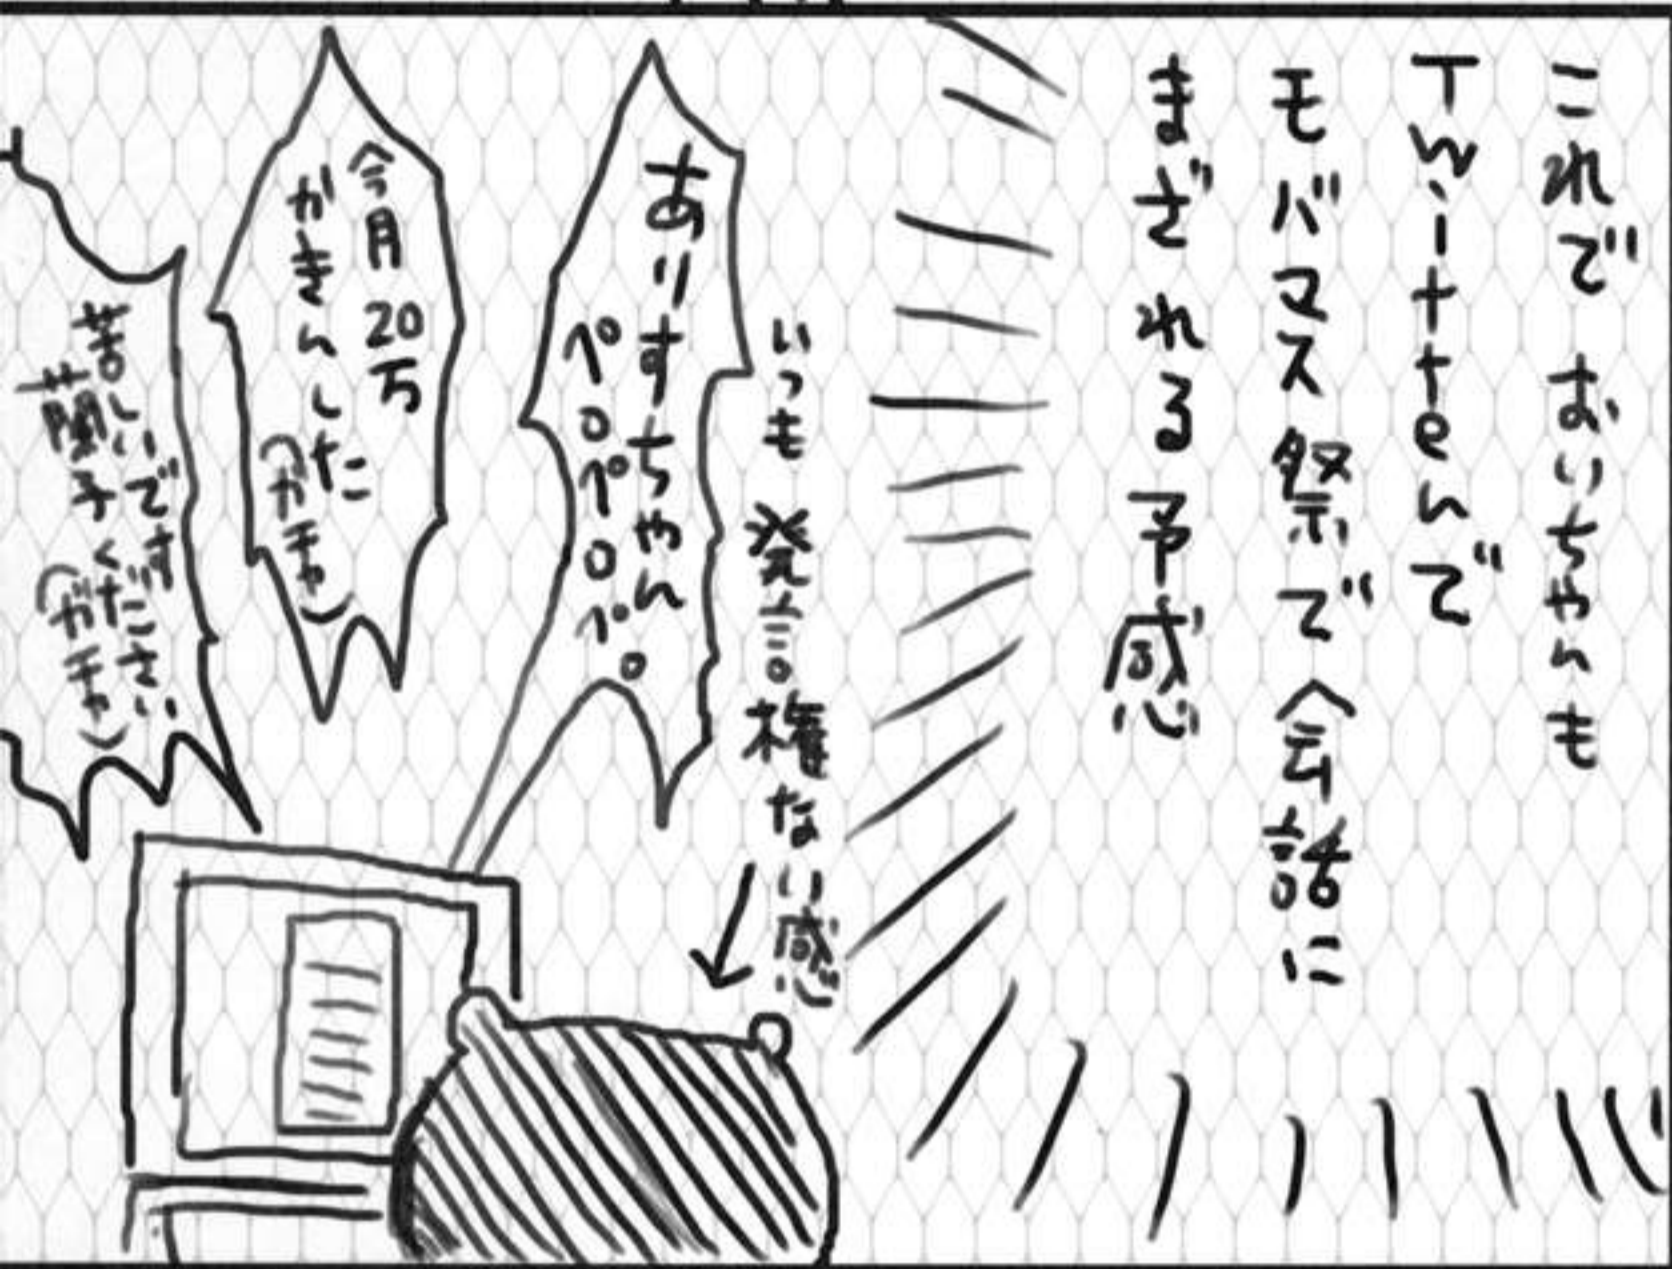 これで おいちゃんも
Twitterんで
モバマス祭で会話に
まざれる予感
いつも発言権ない感
ありすちゃん
ペロペロペロ
今月20万
かきんした
(ガチャ)
苦しいです
蘭子ください
(ガチャ)